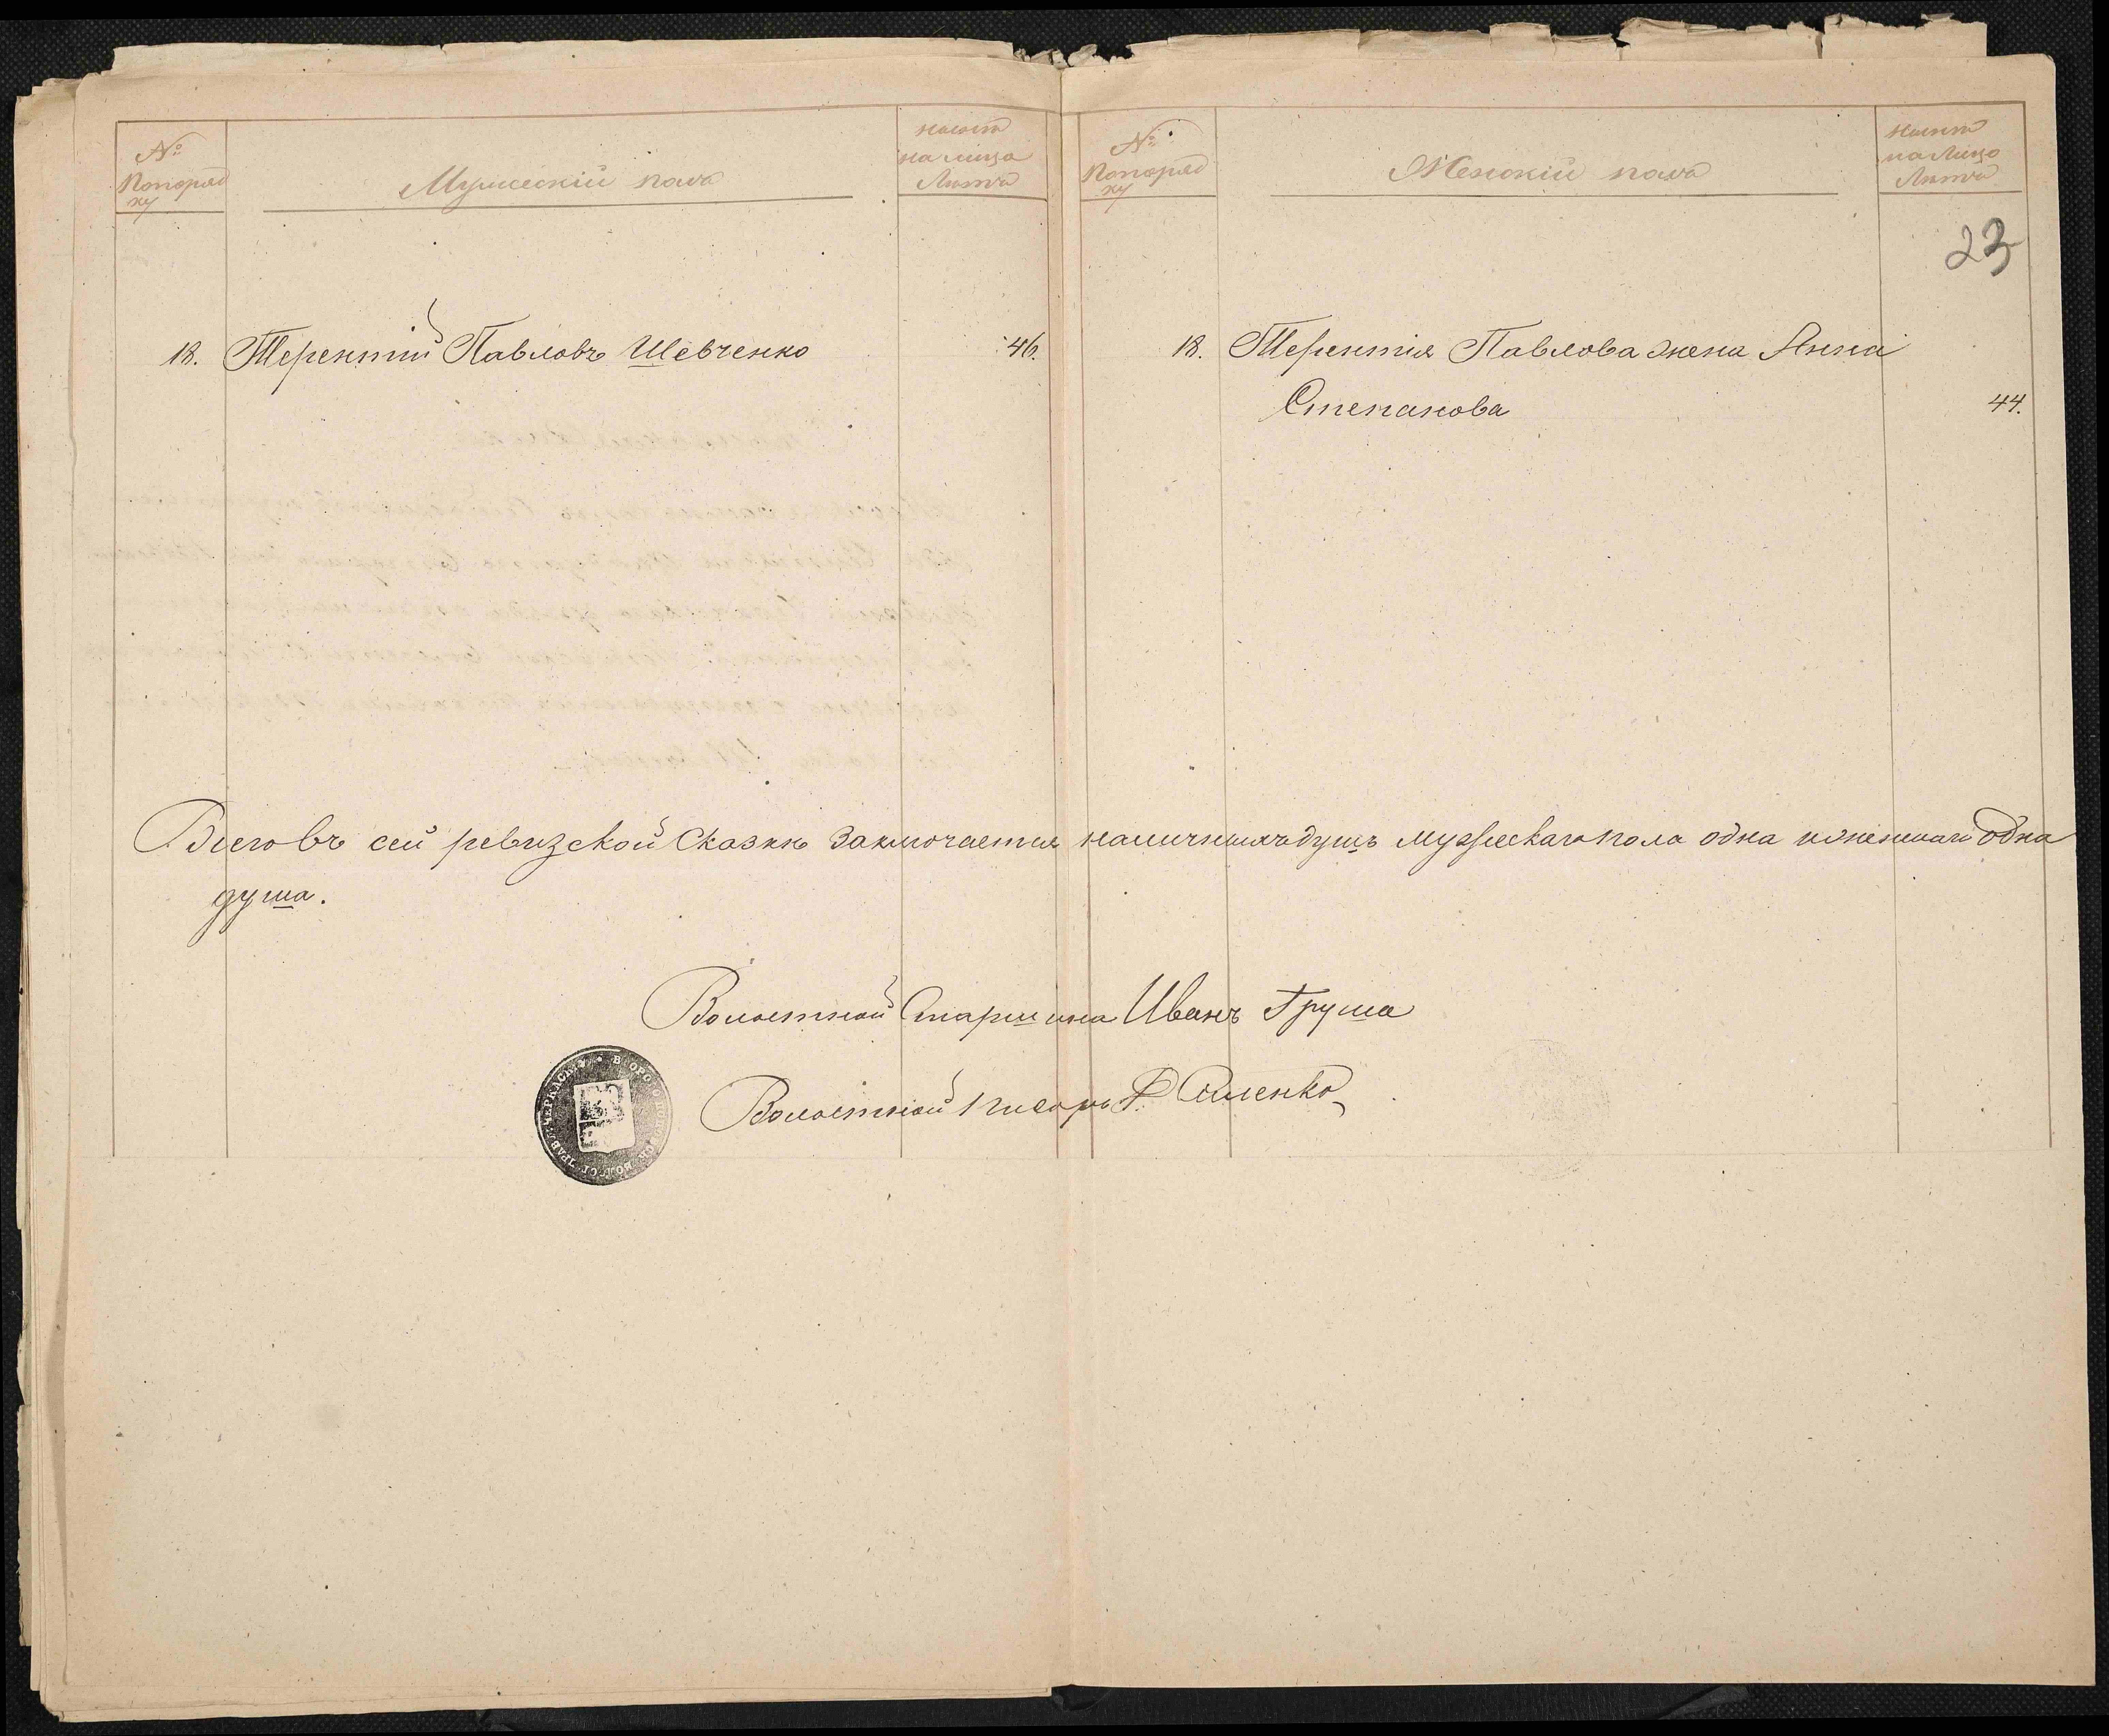 №
Попоряд
ку
Мужескій полъ
ныыт
на лицо
Лѣта
№
Попоряд
ку
Женскій полъ
на лицо
Лѣта
23
18. Терентій Павловъ Шевченко 46.
18. Терентія Павлова жена Анна
Степанова 44.
Всего въ сей ревизской Сказкѣ Заключается наличныхъ душъ мужескаго пола одна и женскаго одна
душа.
Волостной Старшина Иванъ Груша
Волостной писарь